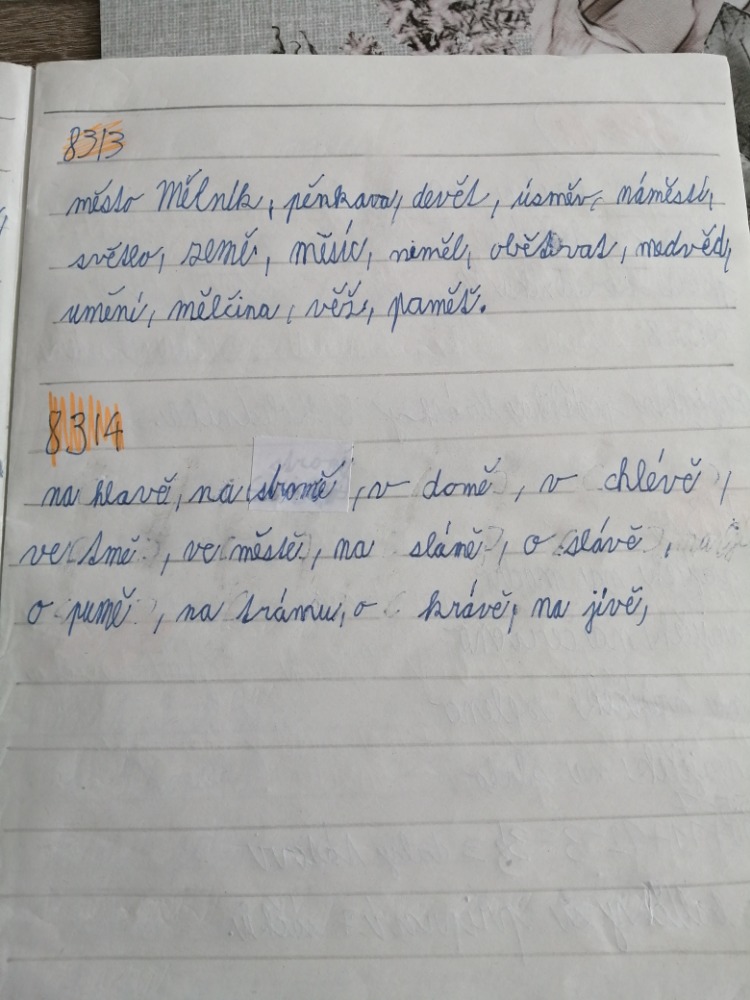 83/3
město Mělník, pěnkava, devět, úsměv, náměstí,
světlo, země, měsíc, neměl, obětovat, medvěd,
umění, mělčina, věž, paměť.
83/4
na hlavě, na stromě, v domě, v chlévě,
ve tmě, ve městě, na slámě, o slávě,
o pumě, na trámu, o krávě, na jívě,